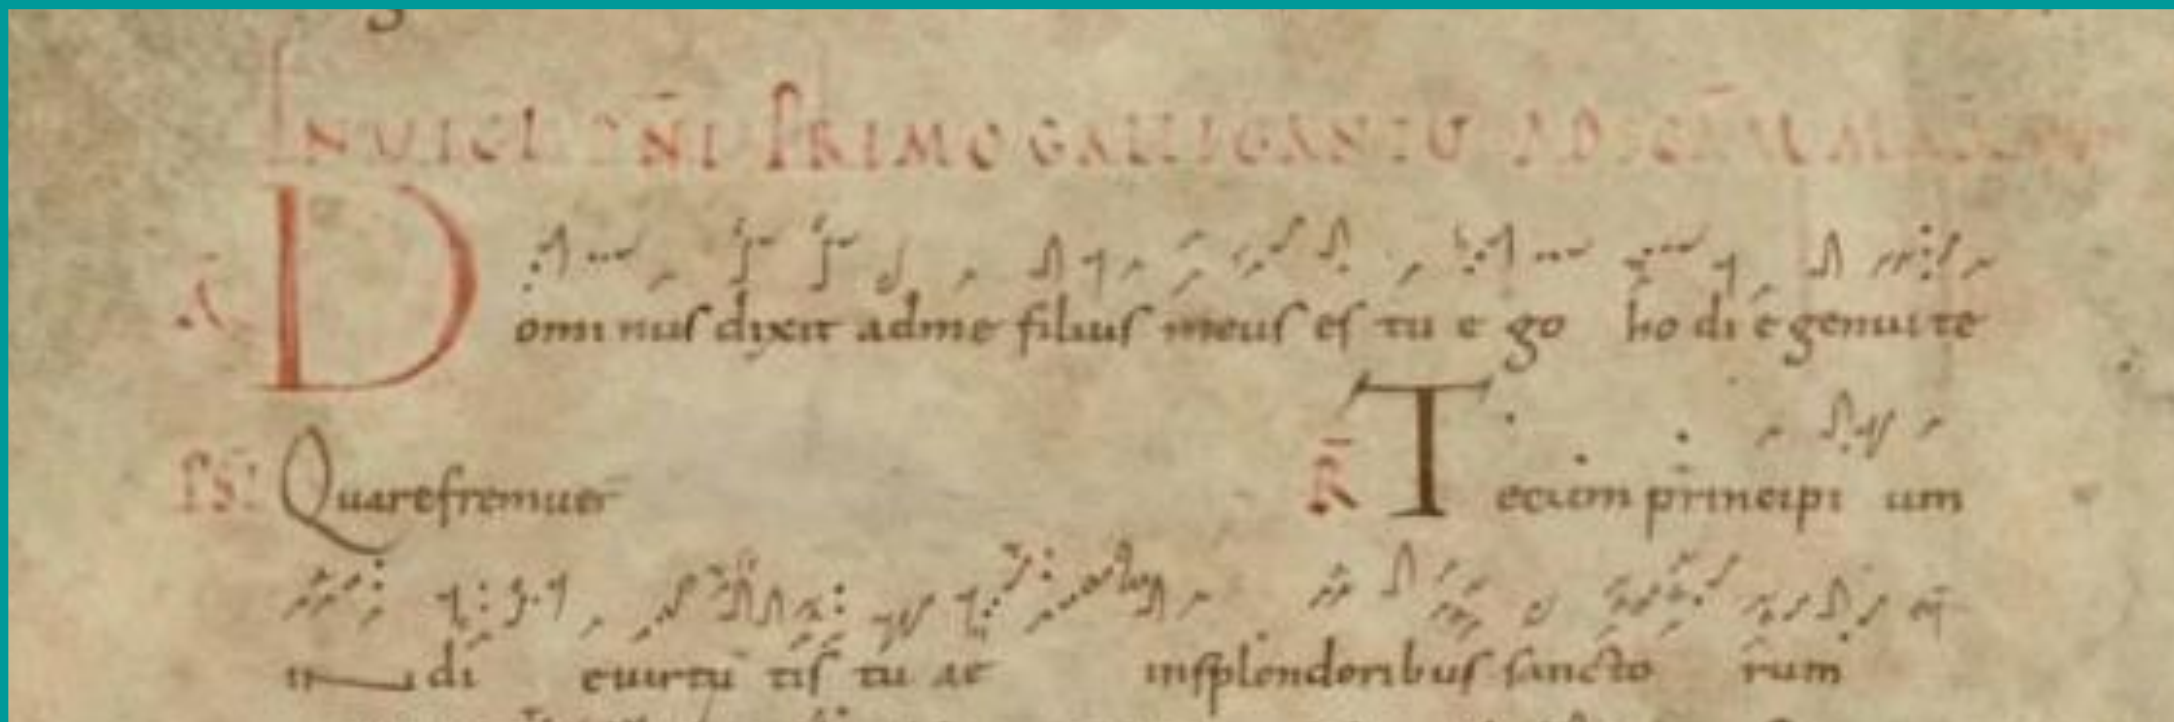 IN VIGL DNI PRIMO GALLI CANTU AD SCAM MARIAM
A Domi nus dixit ad me filius meus es tu e go ho di e genui te
PS Quare fremuer R Tecum principi um
in di e uirtu tis tu ae in splendoribus sancto rum